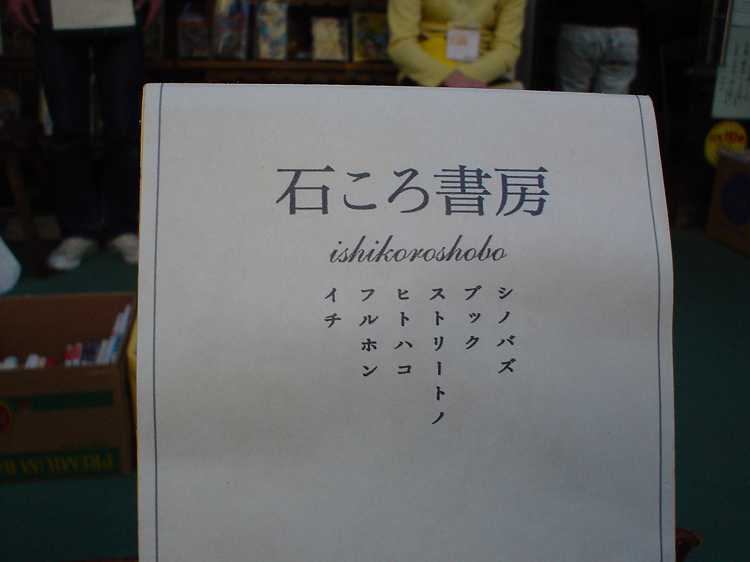 石ころ書房
ishikoroshobo
シノバズ
ブック
ストリートノ
ヒトハコ
フルホン
イチ
PREMIUM